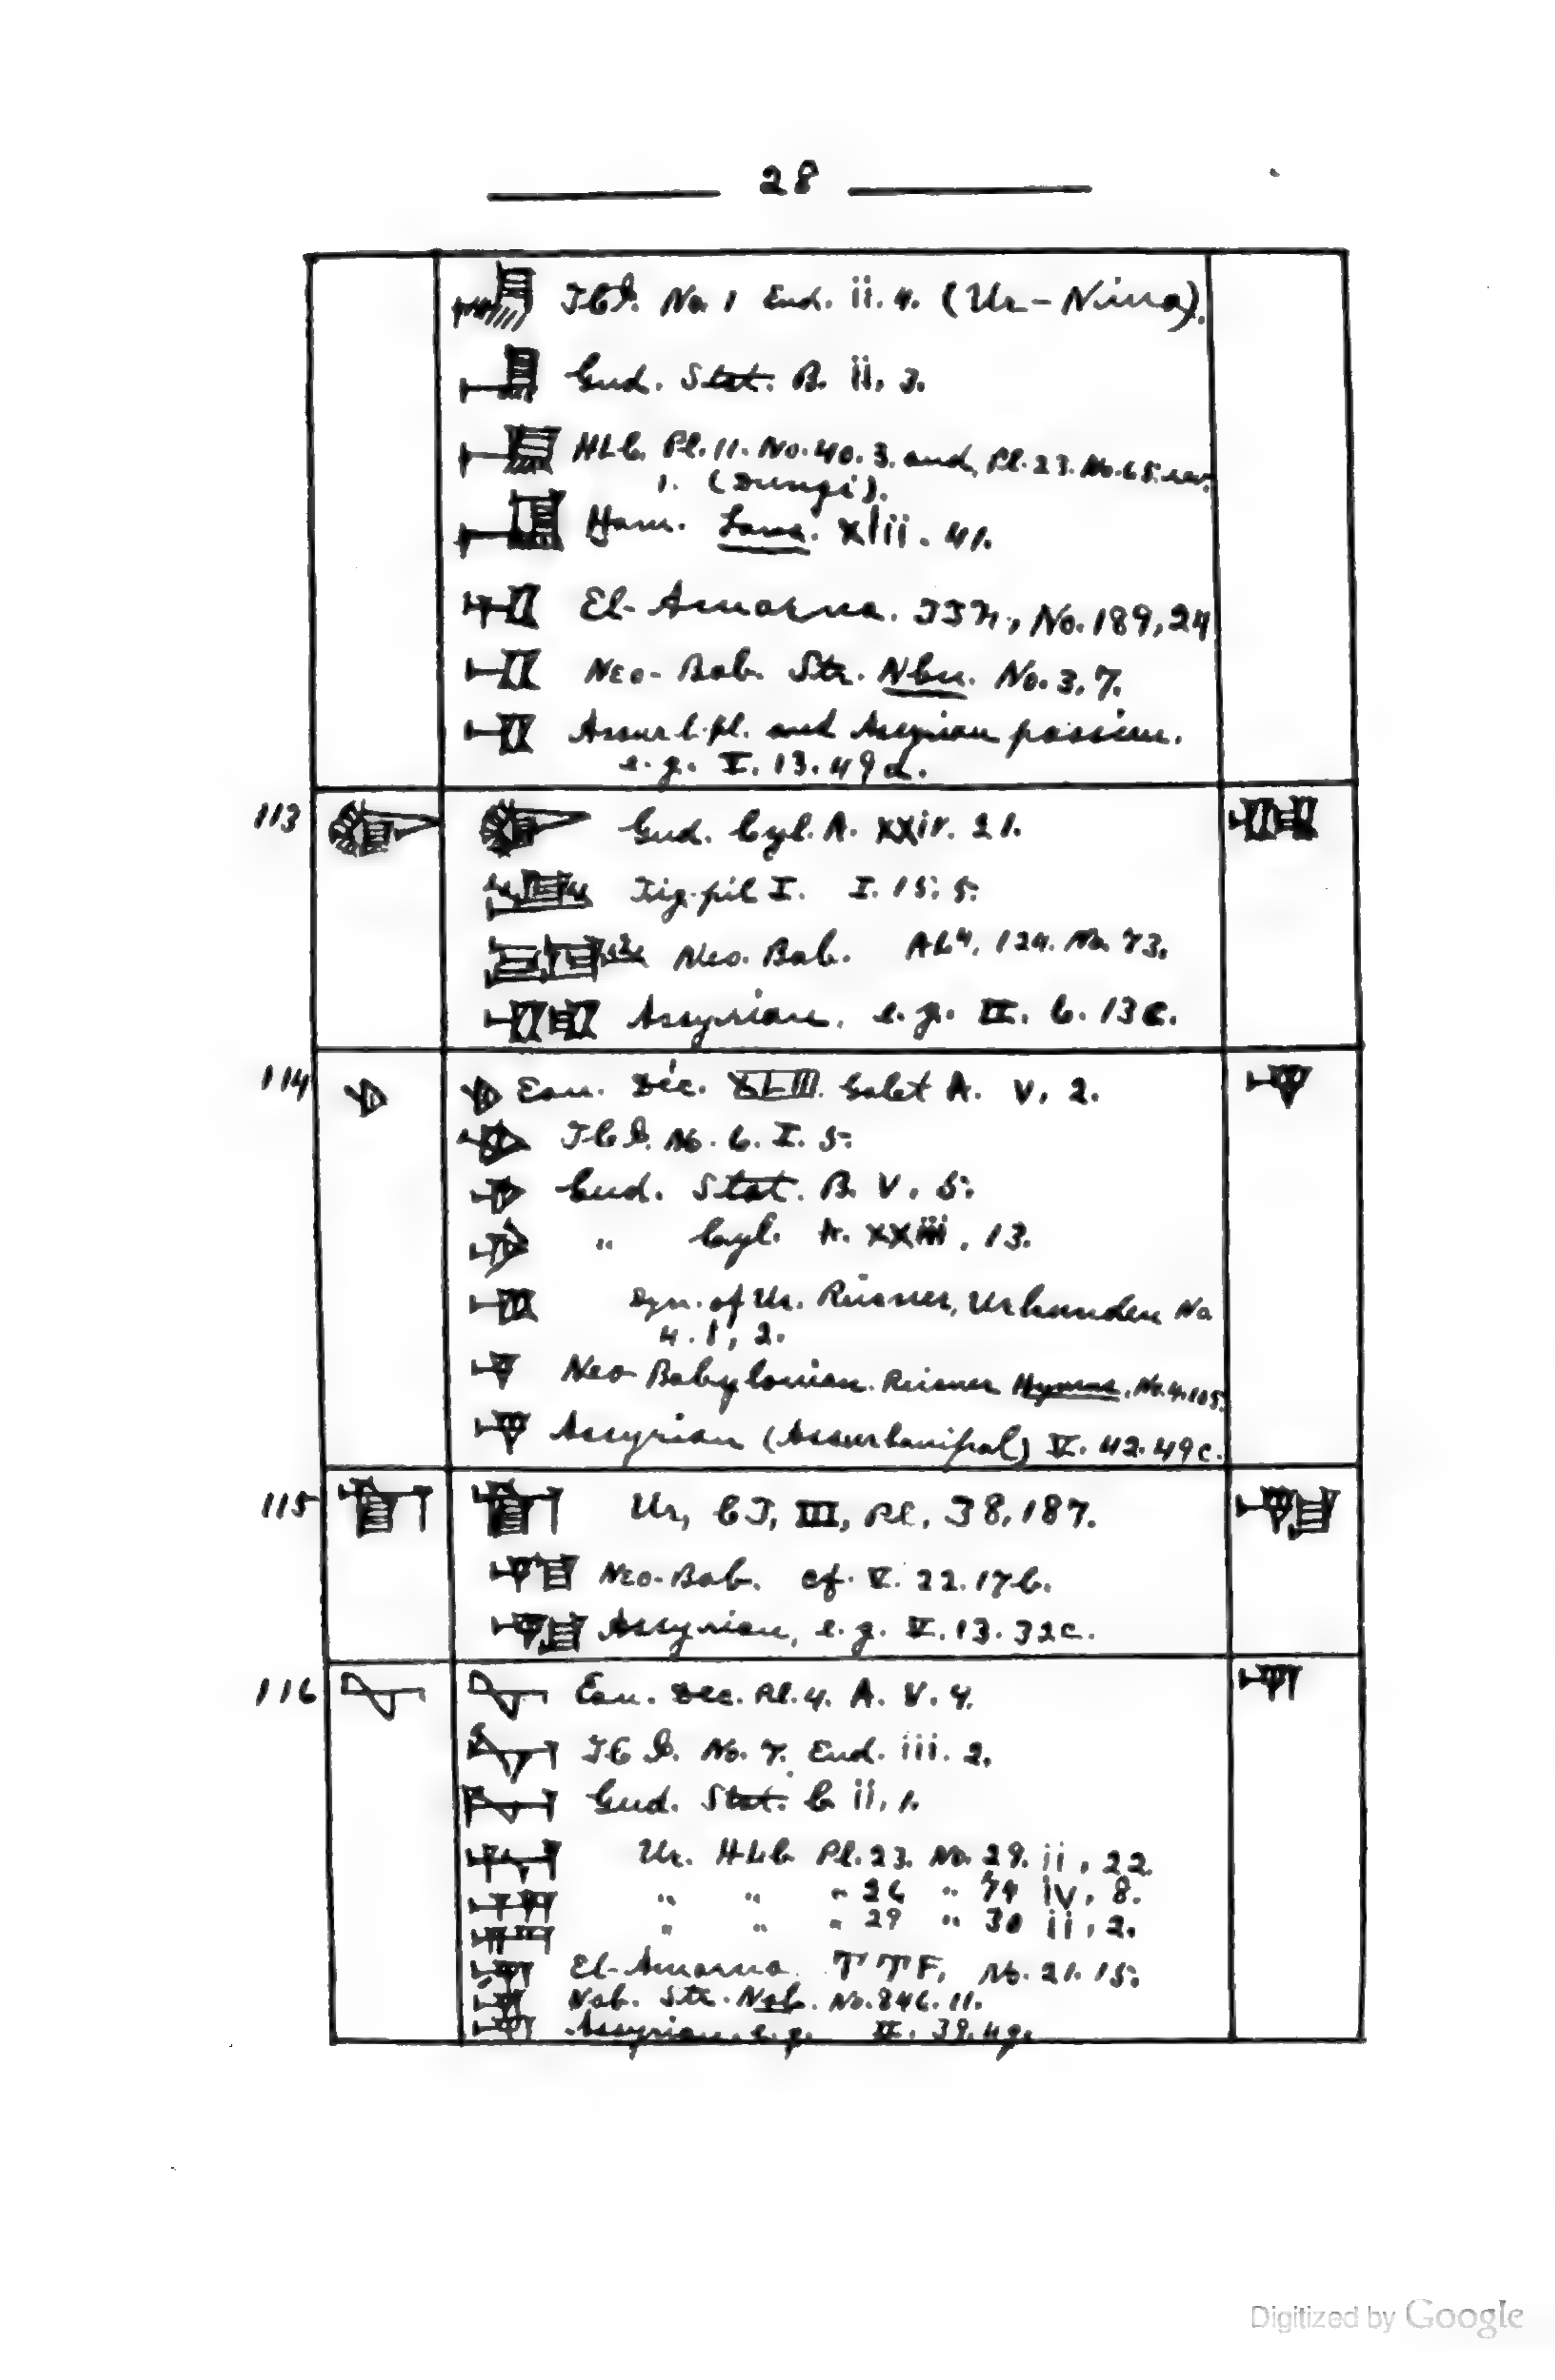 28
TCI. No. 1 End. ii. 4. (Ur-Nina).
Gud. Stat. B. ii, 3.
HLC. Pl. 11. No. 40. 3. and, Pl. 23. No. 65. rev.
1. (Dungi).
Ham. Laws. xlii. 41.
El-Amarna. No. 189, 24
Neo-Bab. Str. Nbn. No. 3, 7.
Assurb.pl. and Assyrian passim.
e.g. V. 13. 49 d.
113 Gud. Cyl. A. xxiv. 21.
Tig-pil I. I. 15. 5.
Neo. Bab. AL4, 124. No. 73.
Assyrian, e.g. II. 6. 13 c.
114 Ean. Déc. XLIII. Galet A. V, 2.
TCI. No. 6. I. 5.
Gud. Stat. B. V, 5.
" Cyl. A. xxiii, 13.
Dyn. of Ur. Reisner, Urkunden No
4. 1, 2.
Neo-Babylonian. Reisner Hymns, No. 4. 105.
Assyrian (Assurbanipal) V. 42. 49 c.
115 Ur, CT, III, Pl. 38, 187.
Neo-Bab. cf. V. 22. 17 b.
Assyrian, e.g. V. 13. 32 c.
116 Ean. Dec. Pl. 4. A. V. 4.
TCI. No. 7. End. iii. 2.
Gud. Stat. C ii, 1.
Ur. HLC Pl. 23. No. 29. ii, 22.
" " " 26 " 74 iv, 8.
" " " 29 " 30 ii, 2.
El-Amarna. TTF, No. 21. 15.
Nab. Str. Nab. No. 846. 11.
Assyrian. e.g. II. 39. 4 g.
Digitized by Google